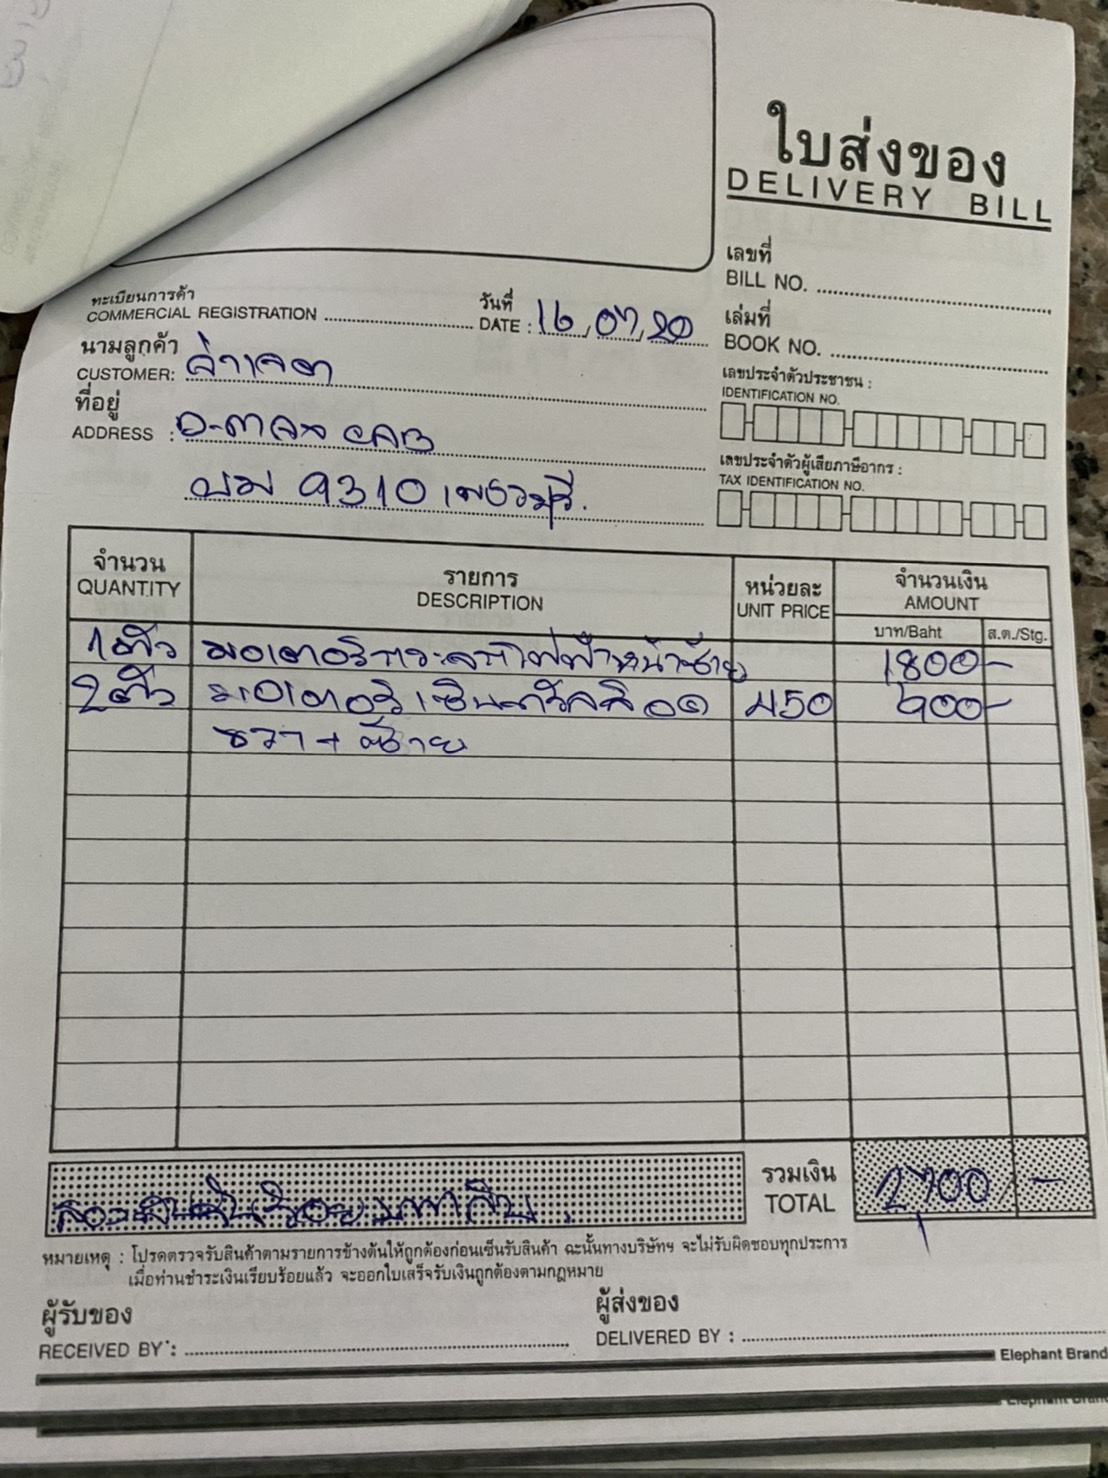 ใบส่งของ
DELIVERY BILL
เลขที่
BILL NO.
ทะเบียนการค้า
COMMERCIAL REGISTRATION
วันที่
DATE : 16, 07, 20
เล่มที่
BOOK NO.
นามลูกค้า
CUSTOMER:
เลขประจำตัวประชาชน :
IDENTIFICATION NO.
ที่อยู่
ADDRESS :
เลขประจำตัวผู้เสียภาษีอากร :
TAX IDENTIFICATION NO.
9310 เพชรบุรี.
จำนวน
QUANTITY
รายการ
DESCRIPTION
หน่วยละ
UNIT PRICE
จำนวนเงิน
AMOUNT
บาท/Baht ส.ต./Stg.
1 ตัว มอเตอร์กระจกไฟฟ้าหน้าซ้าย 1,800 -
2 ตัว มอเตอร์เซ็นทรัลล็อค 450 900 -
ขวา + ซ้าย
รวมเงิน
TOTAL 2,700 -
สองพันเจ็ดร้อยบาทถ้วน
หมายเหตุ : โปรดตรวจรับสินค้าตามรายการข้างต้นให้ถูกต้องก่อนเซ็นรับสินค้า ฉะนั้นทางบริษัทฯ จะไม่รับผิดชอบทุกประการ
เมื่อท่านชำระเงินเรียบร้อยแล้ว จะออกใบเสร็จรับเงินถูกต้องตามกฎหมาย
ผู้รับของ
RECEIVED BY :
ผู้ส่งของ
DELIVERED BY :
Elephant Brand